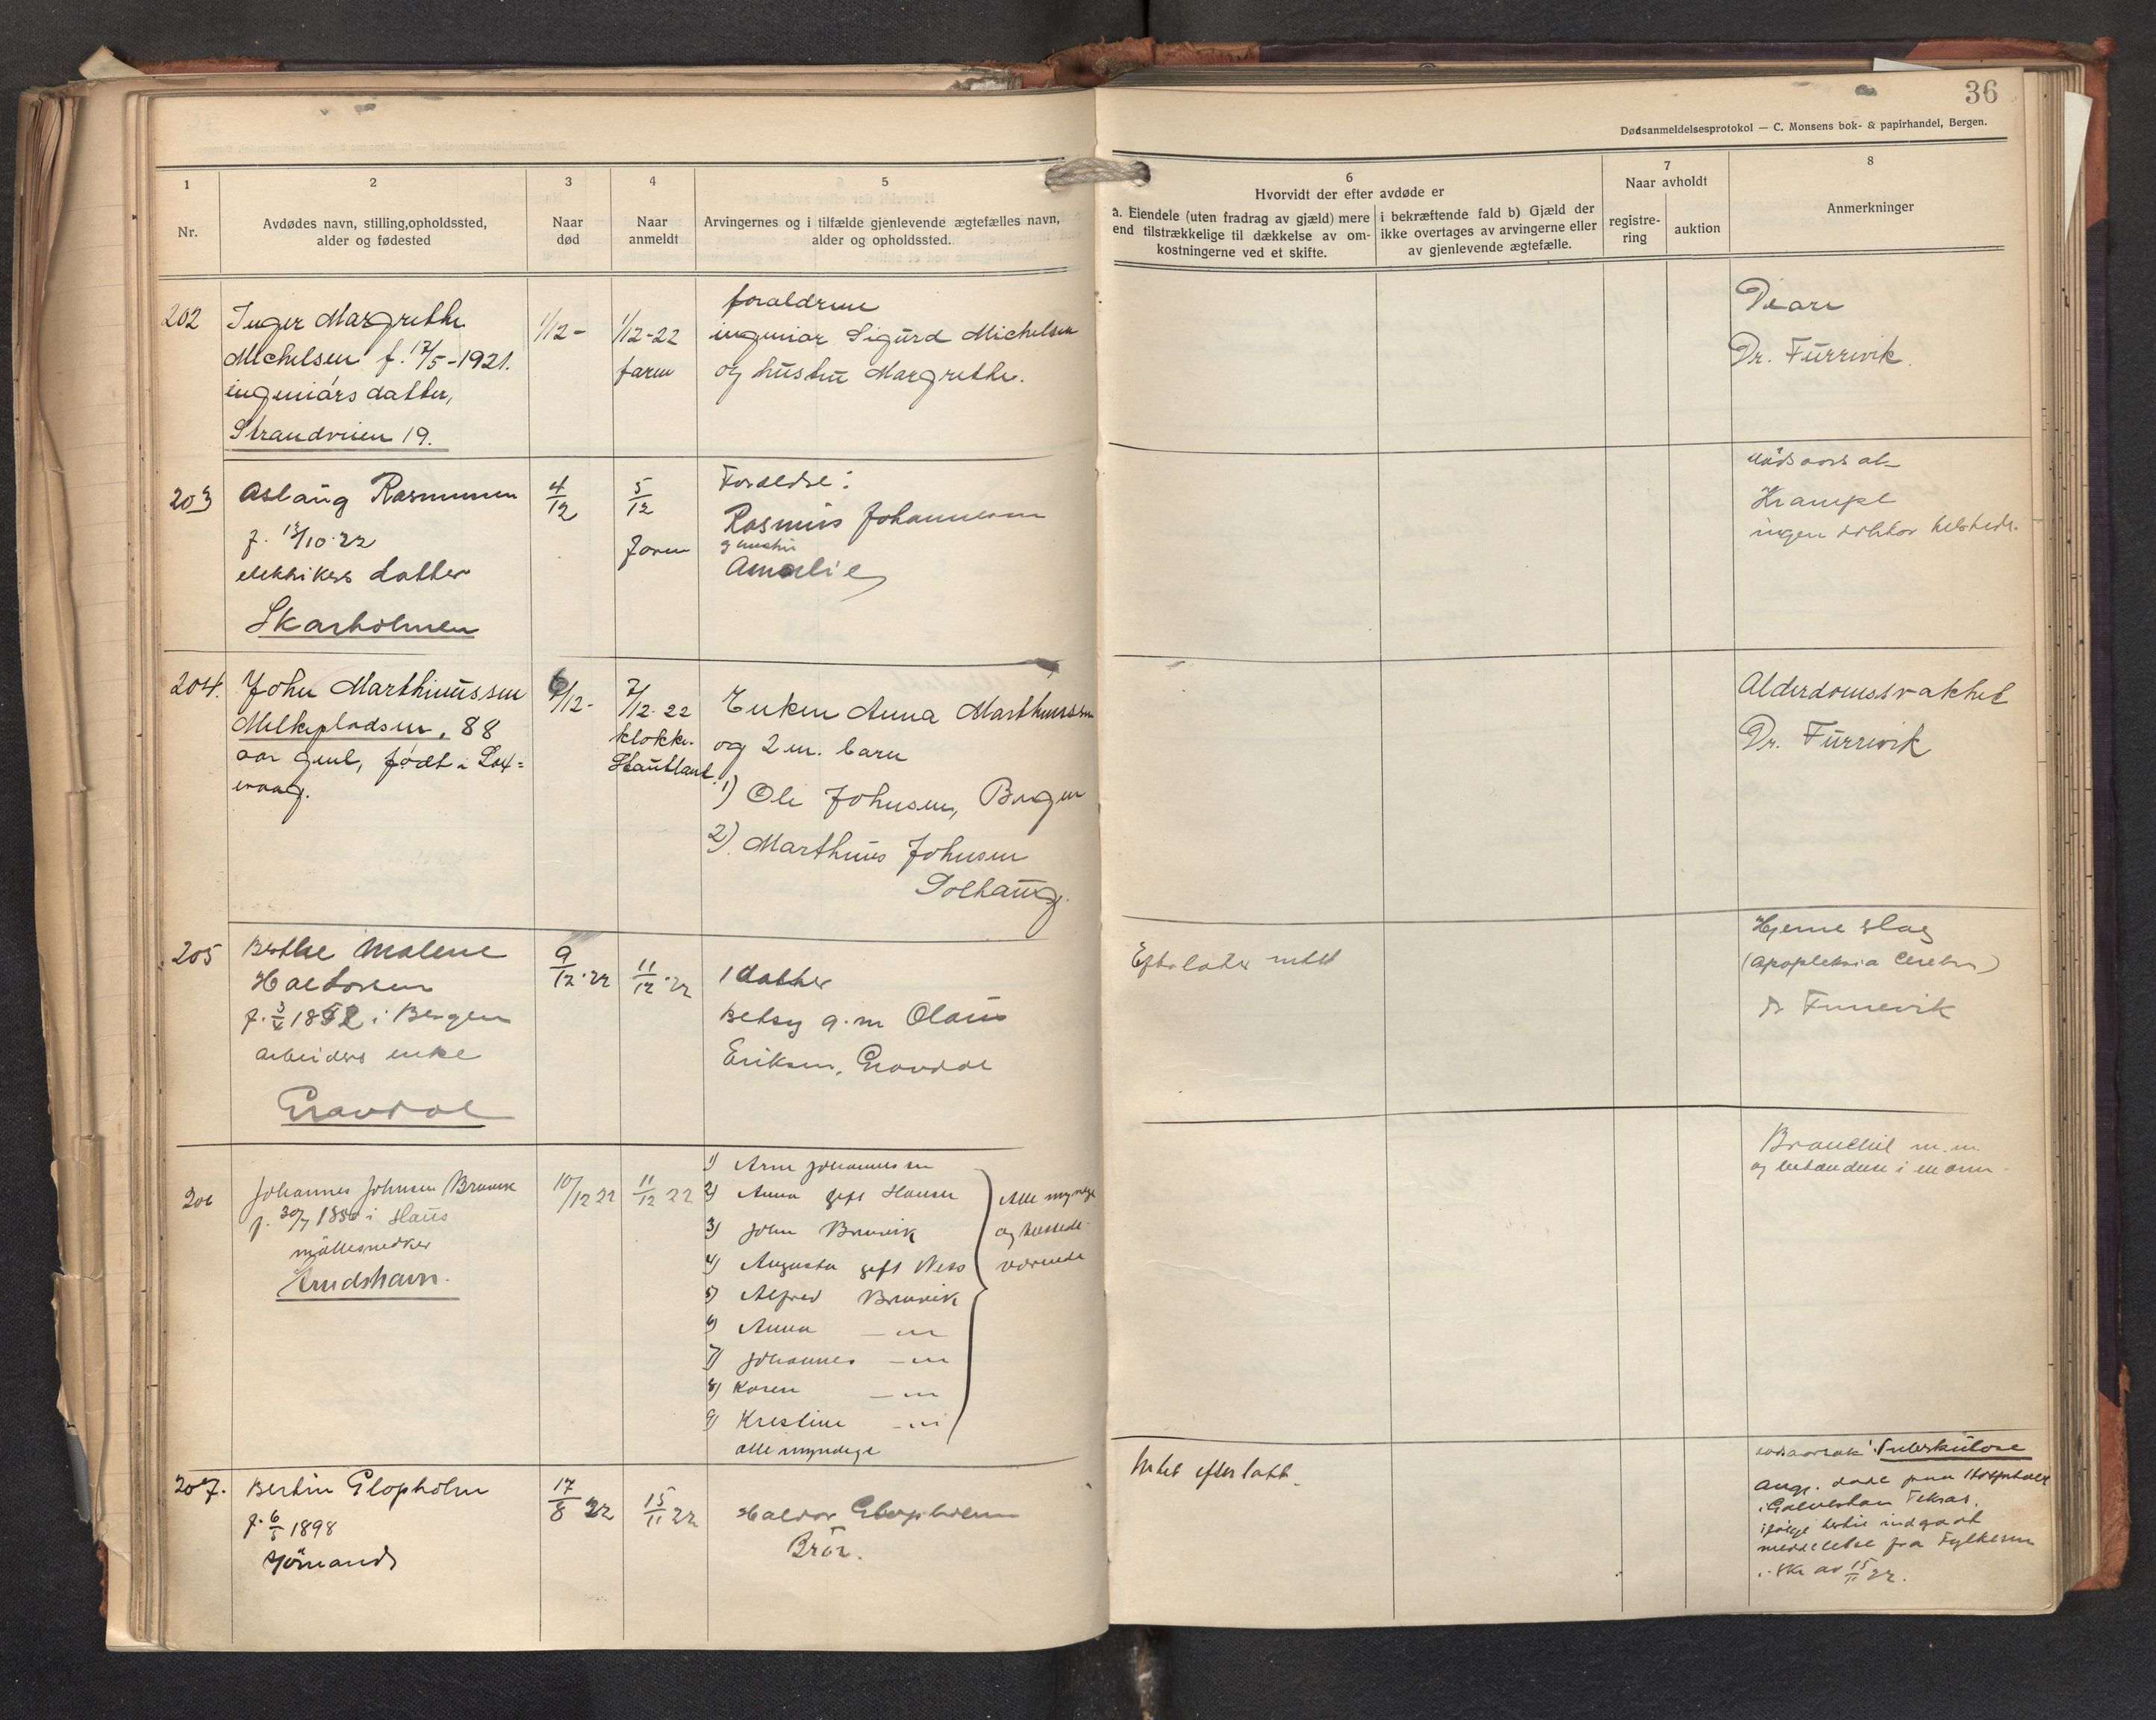 36
Dødsanmeldelsesprotokol — C. Monsens bok- & papirhandel, Bergen.
1
Nr.
2
Avdødes navn, stilling, opholdssted,
alder og fødested
3
Naar
død
4
Naar
anmeldt
5
Arvingernes og i tilfælde gjenlevende ægtefælles navn,
alder og opholdssted.
6
Hvorvidt der efter avdøde er
a. Eiendele (uten fradrag av gjæld) mere
end tilstrækkelige til dækkelse av om-
kostningerne ved et skifte.
i bekræftende fald b) Gjæld der
ikke overtages av arvingerne eller
av gjenlevende ægtefælle.
7
Naar avholdt
registre-
ring
auktion
8
Anmerkninger
202
Inger Margrethe
Michelsen f. 17/5-1921.
ingeniørs datter,
Strandveien 19.
1/12-
1/12-22
faren
foraldrene
ingeniør Sigurd Michelsen
og hustru Margrethe.
Dr. Furrevik.
203
Aslaug Rasmussen
f. 13/10-22
elektrikers datter
Skarholmen
4/12
5/12
Faren
Forældre:
Rasmus Johannesen
Amalie
Dødsaarsak
Krampe
ingen doktor tilstede.
204.
John Marthinussen
Melkepladsen, 88
aar gml, født i Lax=
evaag.
6/12-
7/12-22
klokker
Enken Anna Marthinussen
og 2 m. barn
1) Ole Johnsen, Bergen
2). Marthinus Johnsen
Solhaug.
Alderdomssvakhet
Dr. Furrevik
205
Berthe Malene
Haldorsen
i Bergen
arbeiders enke
Gravdal
9/12-22
11/12-22
1 datter
Betsy g. m. Olaus
Eriksen, Gravdal
Efterlater intet
Hjerneslag
(Apopleksia Cerebri)
Dr Furrevik
206
Johannes Johnsen Bruvik
f. 30/7 1850 i Haus
møllesnedker
10/12 22
11/12 22
1) Arne Johannessen
2) Anna gift Hansen
3) John Bruvik
4) Augusta gift Ness
5) Alfred Bruvik
6) Anna —"—
7) Johannes —"—
8) Karen —"—
9) Kristine —"—
alle myndige
Alle myndige
og tilstede-
værende
m.m.
207.
Bertin Glopholm
f. 6/5 1898
sjømand
17/8 22
15/11 22
Haldor Glopholm
Bror.
Intet efterlatt.
Dødsaarsak: Tuberkulose
Ang. døde paa Hospitalet
i Galveston Texas.
ifølge hertil indgaat
meddelelse fra Fylkesm
i skr av 15/11 22.